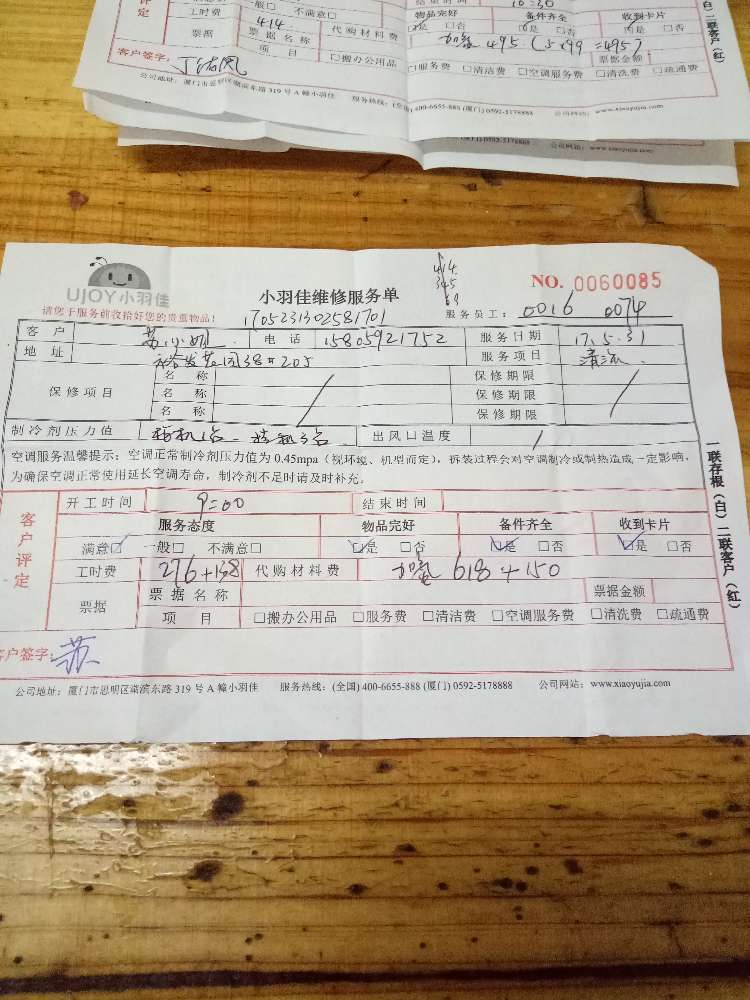 评定
一般□ 不满意□
工时费 414
代购材料费 加氟 495 (5x99=495)
结束时间 10:30
物品完好 备件齐全 收到卡片
是 □否 是 □否 是 □否
票据 票据名称
票据金额
项目 □搬办公用品 □服务费 □清洁费 □空调服务费 □清洗费 □疏通费
客户签字:
公司地址:厦门市思明区莲滨东路319号A幢小羽佳 服务热线:(全国)400-6655-888 (厦门)0592-5178888 公司网站:www.xiaoyujia.com
白) 二联客户(红)
0592-5178888 公司网站:www.xiaoyujia.com
UJOY小羽佳
请您于服务前收拾好您的贵重物品!
小羽佳维修服务单
414
345
69
NO. 0060085
1705231302581701
服务员工: 0016 0074
客户 苏小姐 电话 15805921752 服务日期 17.5.31
地址 裕发花园38#205 服务项目 清洗
保修项目 名称 保修期限
名称 保修期限
名称 保修期限
制冷剂压力值 柜机1台 挂机3台 出风口温度
空调服务温馨提示:空调正常制冷剂压力值为0.45mpa(视环境、机型而定),拆装过程会对空调制冷或制热造成一定影响,
为确保空调正常使用延长空调寿命,制冷剂不足时请及时补充。
客户评定
开工时间 9:00 结束时间
服务态度 物品完好 备件齐全 收到卡片
满意□ 一般□ 不满意□ □是 □否 □是 □否 □是 □否
工时费 276+138 代购材料费 加氟 618+150
票据 票据名称 票据金额
项目 □搬办公用品 □服务费 □清洁费 □空调服务费 □清洗费 □疏通费
客户签字: 苏
公司地址:厦门市思明区莲滨东路319号A幢小羽佳 服务热线:(全国)400-6655-888 (厦门)0592-5178888 公司网站:www.xiaoyujia.com
一联存根(白) 二联客户(红)